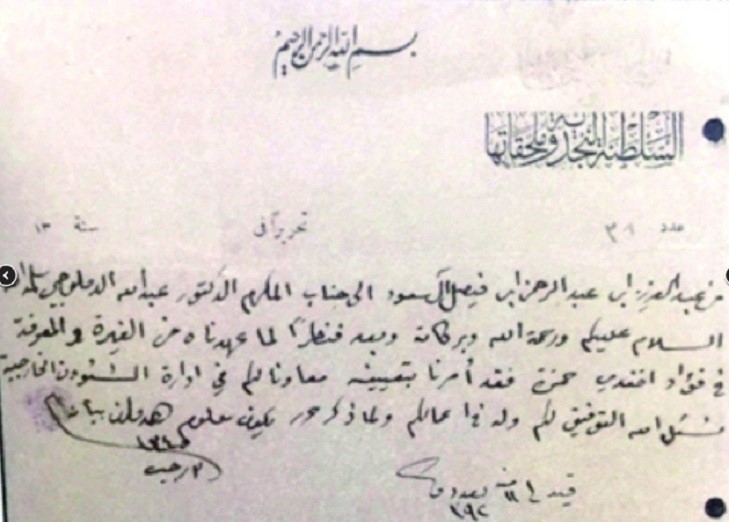 بسم الله الرحمن الرحيم
السلطنة النجدية وملحقاتها
عدد ٣١ تحريراً في سنة ١٣
من عبد العزيز ابن عبد الرحمن ابن فيصل آل سعود الى جناب المكرم الدكتور عبدالله الدملوجي سلمه الله
السلام عليكم ورحمة الله وبركاته وبعد فنظراً لما عهدناه من الغيرة والمعرفة
في فؤاد افندي حمزة فقد أمرنا بتعيينه معاونا لكم في ادارة الشئون الخارجية
نسئل الله التوفيق لكم وله في اعمالكم ولما ذكر حرر ليكون معلوم
رجب
قيد في